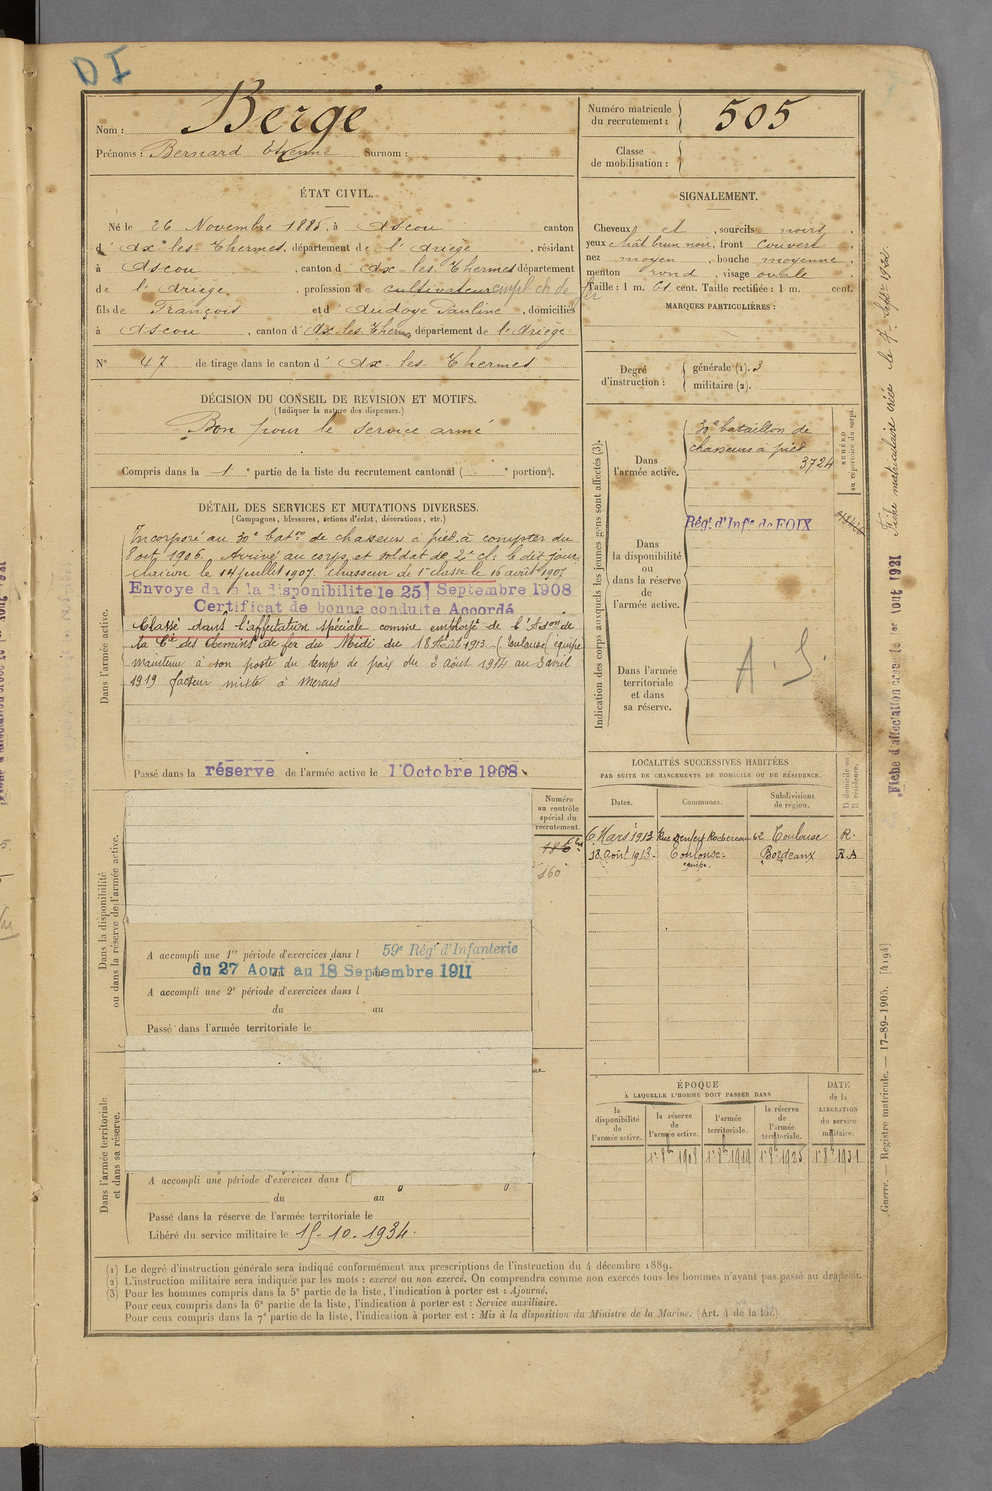 DI
Nom : Bergé
Prénoms : Bernard Etienne Surnom :
Numéro matricule du recrutement : 505
Classe de mobilisation :
ÉTAT CIVIL.
Né le 26 Novembre 1885, à Ascou canton
d' Ax-les-Thermes, département de l'Ariège, résidant
à Ascou, canton d' Ax-les-Thermes département
de l'Ariège, profession de cultivateur empl ch de fer
fils de François et d' Audoye Pauline, domiciliés
à Ascou, canton d' Ax-les-Thermes département de l'Ariège
N° 47 de tirage dans le canton d' Ax-les-Thermes
SIGNALEMENT.
Cheveux et, sourcils noirs,
yeux chât brun noir, front couvert,
nez moyen, bouche moyenne,
menton rond, visage ovale.
Taille : 1 m. 61 cent. Taille rectifiée : 1 m. cent.
MARQUES PARTICULIÈRES :
Degré d'instruction :
générale (1). 3
militaire (2).
DÉCISION DU CONSEIL DE REVISION ET MOTIFS.
(Indiquer la nature des dispenses.)
Bon pour le service armé
Compris dans la 1e partie de la liste du recrutement cantonal ( e portion).
DÉTAIL DES SERVICES ET MUTATIONS DIVERSES.
(Campagnes, blessures, actions d'éclat, décorations, etc.)
Dans l'armée active.
Incorporé au 30e baton de chasseurs à pied à compter du
8 oct 1906. Arrivé au corps et soldat de 2e cl: le dit jour
clairon le 14 juillet 1907. Chasseur de 1e classe le 16 août 1907
Envoyé dans la disponibilité le 25 Septembre 1908
Certificat de bonne conduite Accordé
Classé dans l'affectation spéciale comme employé de l'Adon de
la Cie des Chemins de fer du Midi du 18 Août 1913 - (Toulouse) équipe
maintenu à son poste du temps de paix du 2 Août 1914 au 3 avril
1919 facteur mixte à Mercus
Passé dans la réserve de l'armée active le 1er Octobre 1908
Indication des corps auxquels les jeunes gens sont affectés (3).
Dans l'armée active.
30e bataillon de
chasseurs à pied
3724
NUMÉRO au répertoire du corps.
Régt d'Infie de FOIX
Dans la disponibilité ou dans la réserve de l'armée active.
Dans l'armée territoriale et dans sa réserve.
A. S.
Fiche matriculaire créée le 7 Sept 1922.
Fiche d'affectation créée le 1er Aout 1921
LOCALITÉS SUCCESSIVES HABITÉES
PAR SUITE DE CHANGEMENTS DE DOMICILE OU DE RÉSIDENCE.
Dates. Communes. Subdivisions de région. D domicile ou R résidence.
6 Mars 1913. Rue Denfert Rochereau 62 Toulouse R.
18 août 1913. Toulouse équipe. Bordeaux R A
Dans la disponibilité ou dans la réserve de l'armée active.
Numéro au contrôle spécial du recrutement.
160
A accompli une 1re période d'exercices dans l 59e Régt d'Infanterie
du 27 Aout au 18 Septembre 1911
A accompli une 2e période d'exercices dans l
du au
Passé dans l'armée territoriale le
Dans l'armée territoriale et dans sa réserve.
A accompli une période d'exercices dans l
du au
Passé dans la réserve de l'armée territoriale le
Libéré du service militaire le 15-10-1934.
ÉPOQUE
À LAQUELLE L'HOMME DOIT PASSER DANS
DATE de la LIBÉRATION du service militaire.
la disponibilité de l'armée active. la réserve de l'armée active. l'armée territoriale. la réserve de l'armée territoriale.
1er 8bre 1908 1er 8bre 1919 1er 8bre 1925 1er 8bre 1931
(1) Le degré d'instruction générale sera indiqué conformément aux prescriptions de l'instruction du 4 décembre 1889.
(2) L'instruction militaire sera indiquée par les mots : exercé ou non exercé. On comprendra comme non exercés tous les hommes n'ayant pas passé au drapeau.
(3) Pour les hommes compris dans la 5e partie de la liste, l'indication à porter est : Ajourné.
Pour ceux compris dans la 6e partie de la liste, l'indication à porter est : Service auxiliaire.
Pour ceux compris dans la 7e partie de la liste, l'indication à porter est : Mis à la disposition du Ministre de la Marine. (Art. 4 de la loi.)
Guerre. — Registre matricule. — 17-89-1905. [4194]